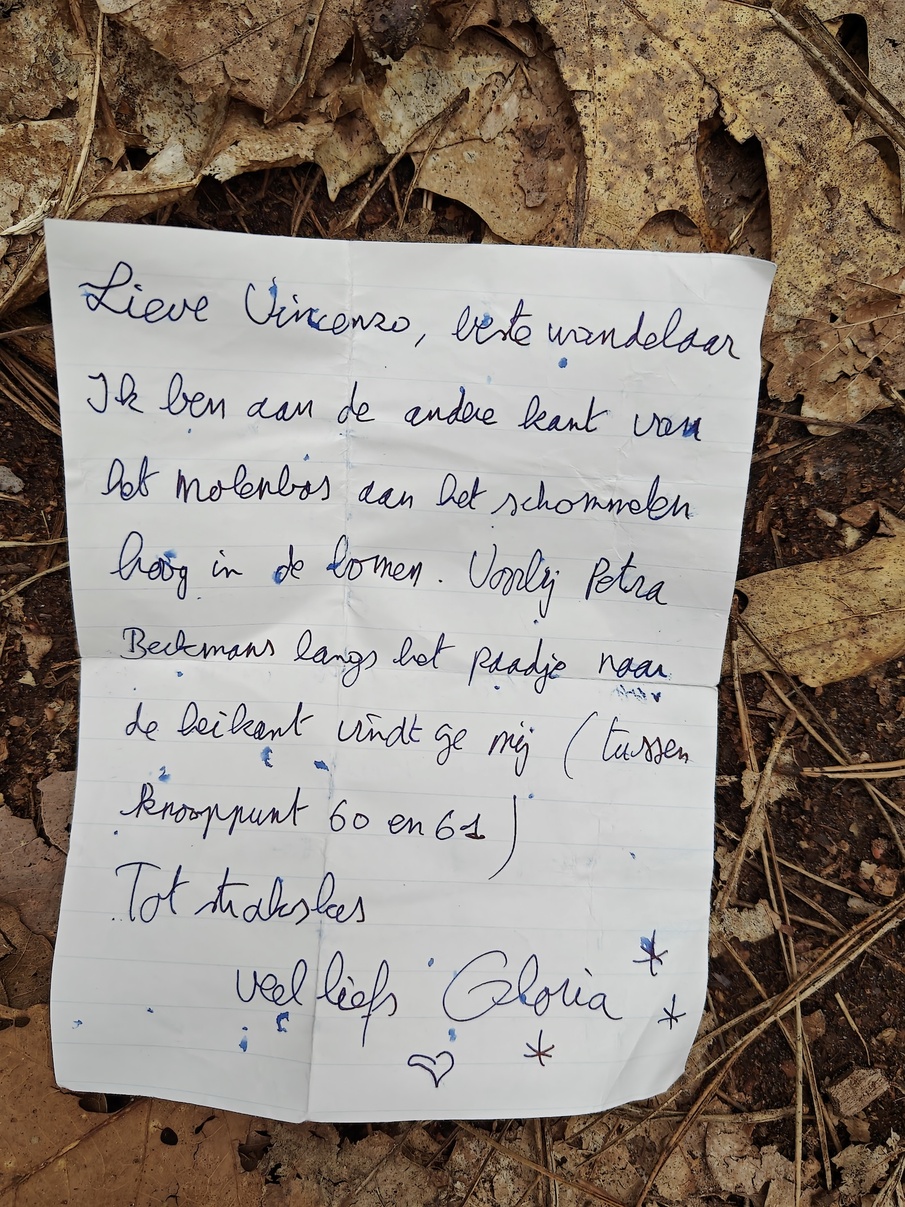 Lieve Vincenzo, beste wandelaar
Ik ben aan de andere kant van
het Molenbos aan het schommelen
hoog in de bomen. Voorbij Petra
Beckmans langs het paadje naar
de heikant vindt ge mij (tussen
knooppunt 60 en 61)
Tot strakskes
veel liefs Gloria